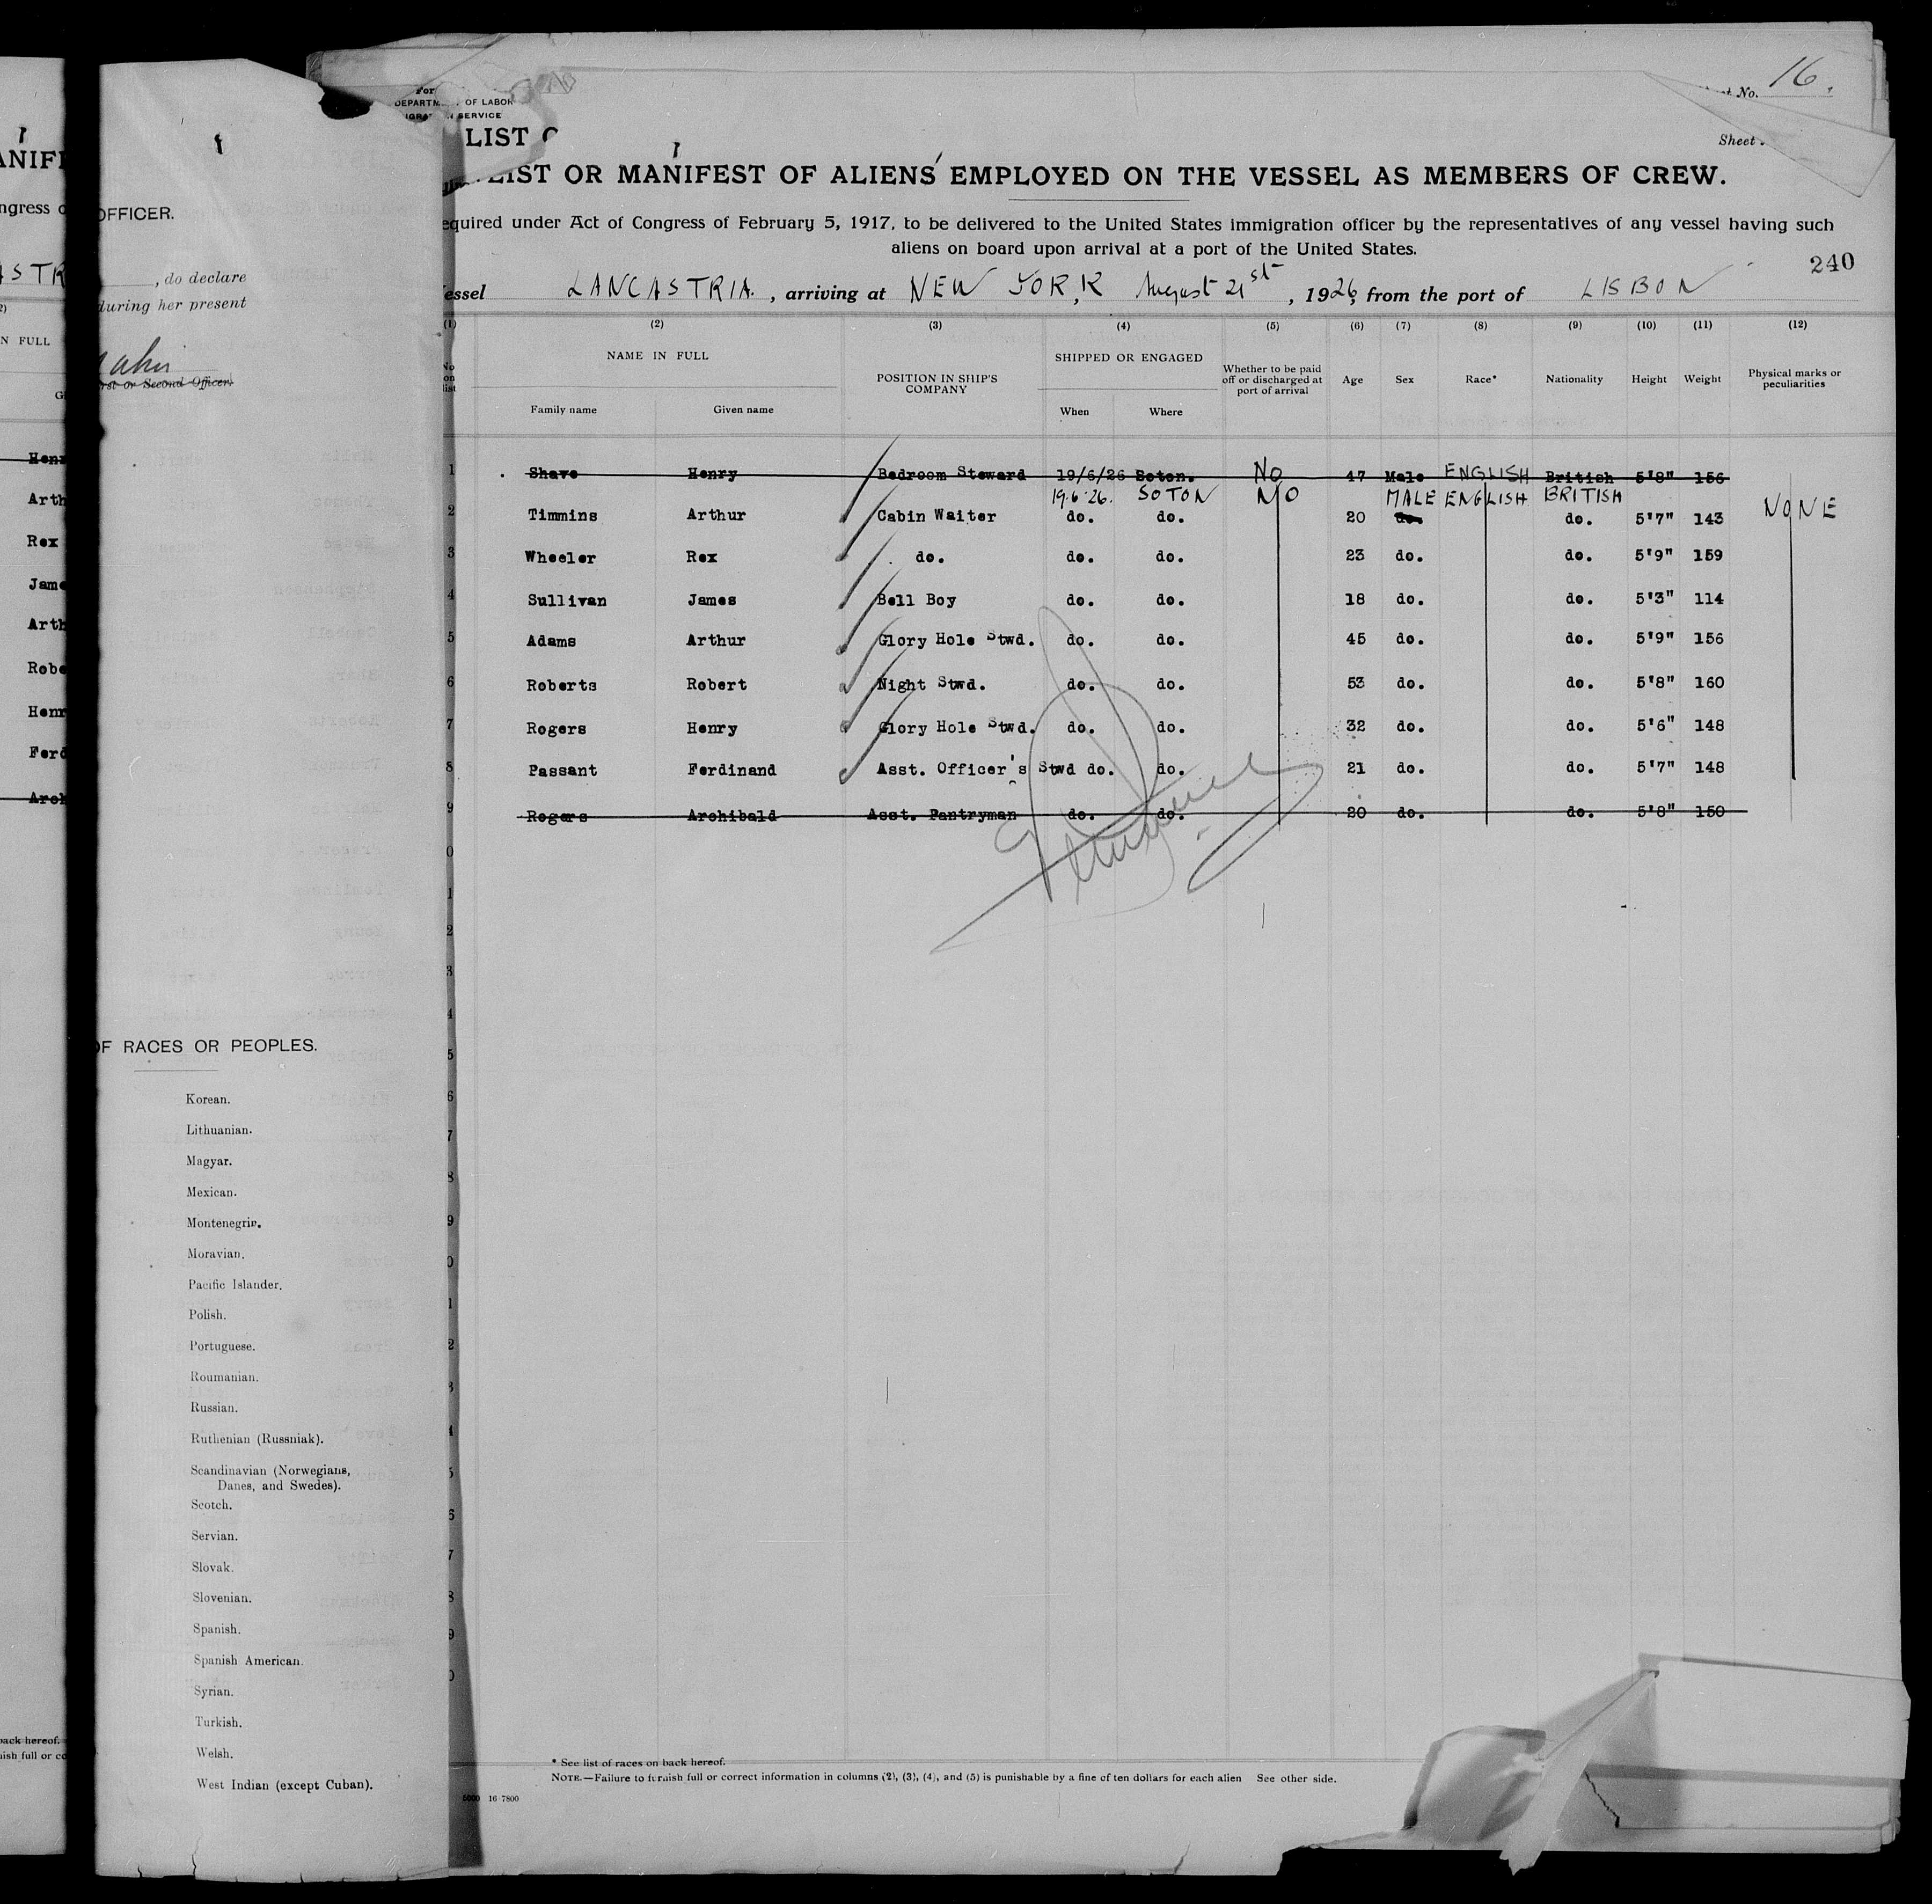 16.
DEPARTM OF LABOR
SERVICE
LIST
240
LIST OR MANIFEST OF ALIENS EMPLOYED ON THE VESSEL AS MEMBERS OF CREW.
equired under Act of Congress of February 5, 1917, to be delivered to the United States immigration officer by the representatives of any vessel having such
aliens on board upon arrival at a port of the United States.
essel LANCASTRIA, arriving at NEW YORK, August 21st, 1926, from the port of LISBON
(1) (2) (3) (4) (5) (6) (7) (8) (9) (10) (11) (12)
No on list NAME IN FULL POSITION IN SHIP'S COMPANY SHIPPED OR ENGAGED Whether to be paid off or discharged at port of arrival Age Sex Race* Nationality Height Weight Physical marks or peculiarities
Family name Given name When Where
1 Shave Henry Bedroom Steward 19/6/26 Soton. NO 47 Male ENGLISH British 5'8" 156
19.6.26. SOTON NO MALE ENGLISH BRITISH NONE
2 Timmins Arthur Cabin Waiter do. do. 20 do. do. 5'7" 143
3 Wheeler Rex do. do. do. 23 do. do. 5'9" 159
4 Sullivan James Bell Boy do. do. 18 do. do. 5'3" 114
5 Adams Arthur Glory Hole Stwd. do. do. 45 do. do. 5'9" 156
6 Roberts Robert Night Stwd. do. do. 53 do. do. 5'8" 160
7 Rogers Henry Glory Hole Stwd. do. do. 32 do. do. 5'6" 148
8 Passant Ferdinand Asst. Officer's Stwd do. do. 21 do. do. 5'7" 148
9 Rogers Archibald Asst. Pantryman do. do. 20 do. do. 5'8" 150
0
1
2
3
4
5
6
7
8
9
0
1
2
3
4
5
6
7
8
9
0
* See list of races on back hereof.
NOTE.—Failure to furnish full or correct information in columns (2), (3), (4), and (5) is punishable by a fine of ten dollars for each alien See other side.
5000 16-7800
OFFICER.
, do declare
during her present
rst or Second Officer.
OF RACES OR PEOPLES.
Korean.
Lithuanian.
Magyar.
Mexican.
Montenegrin.
Moravian.
Pacific Islander.
Polish.
Portuguese.
Roumanian.
Russian.
Ruthenian (Russniak).
Scandinavian (Norwegians,
Danes, and Swedes).
Scotch.
Servian.
Slovak.
Slovenian.
Spanish.
Spanish American.
Syrian.
Turkish.
Welsh.
West Indian (except Cuban).
ANIF
ngress o
ASTR
N FULL
Henr
Arth
Rex
Jame
Arth
Robe
Henr
Ferd
Arch
back hereof.
ish full or co